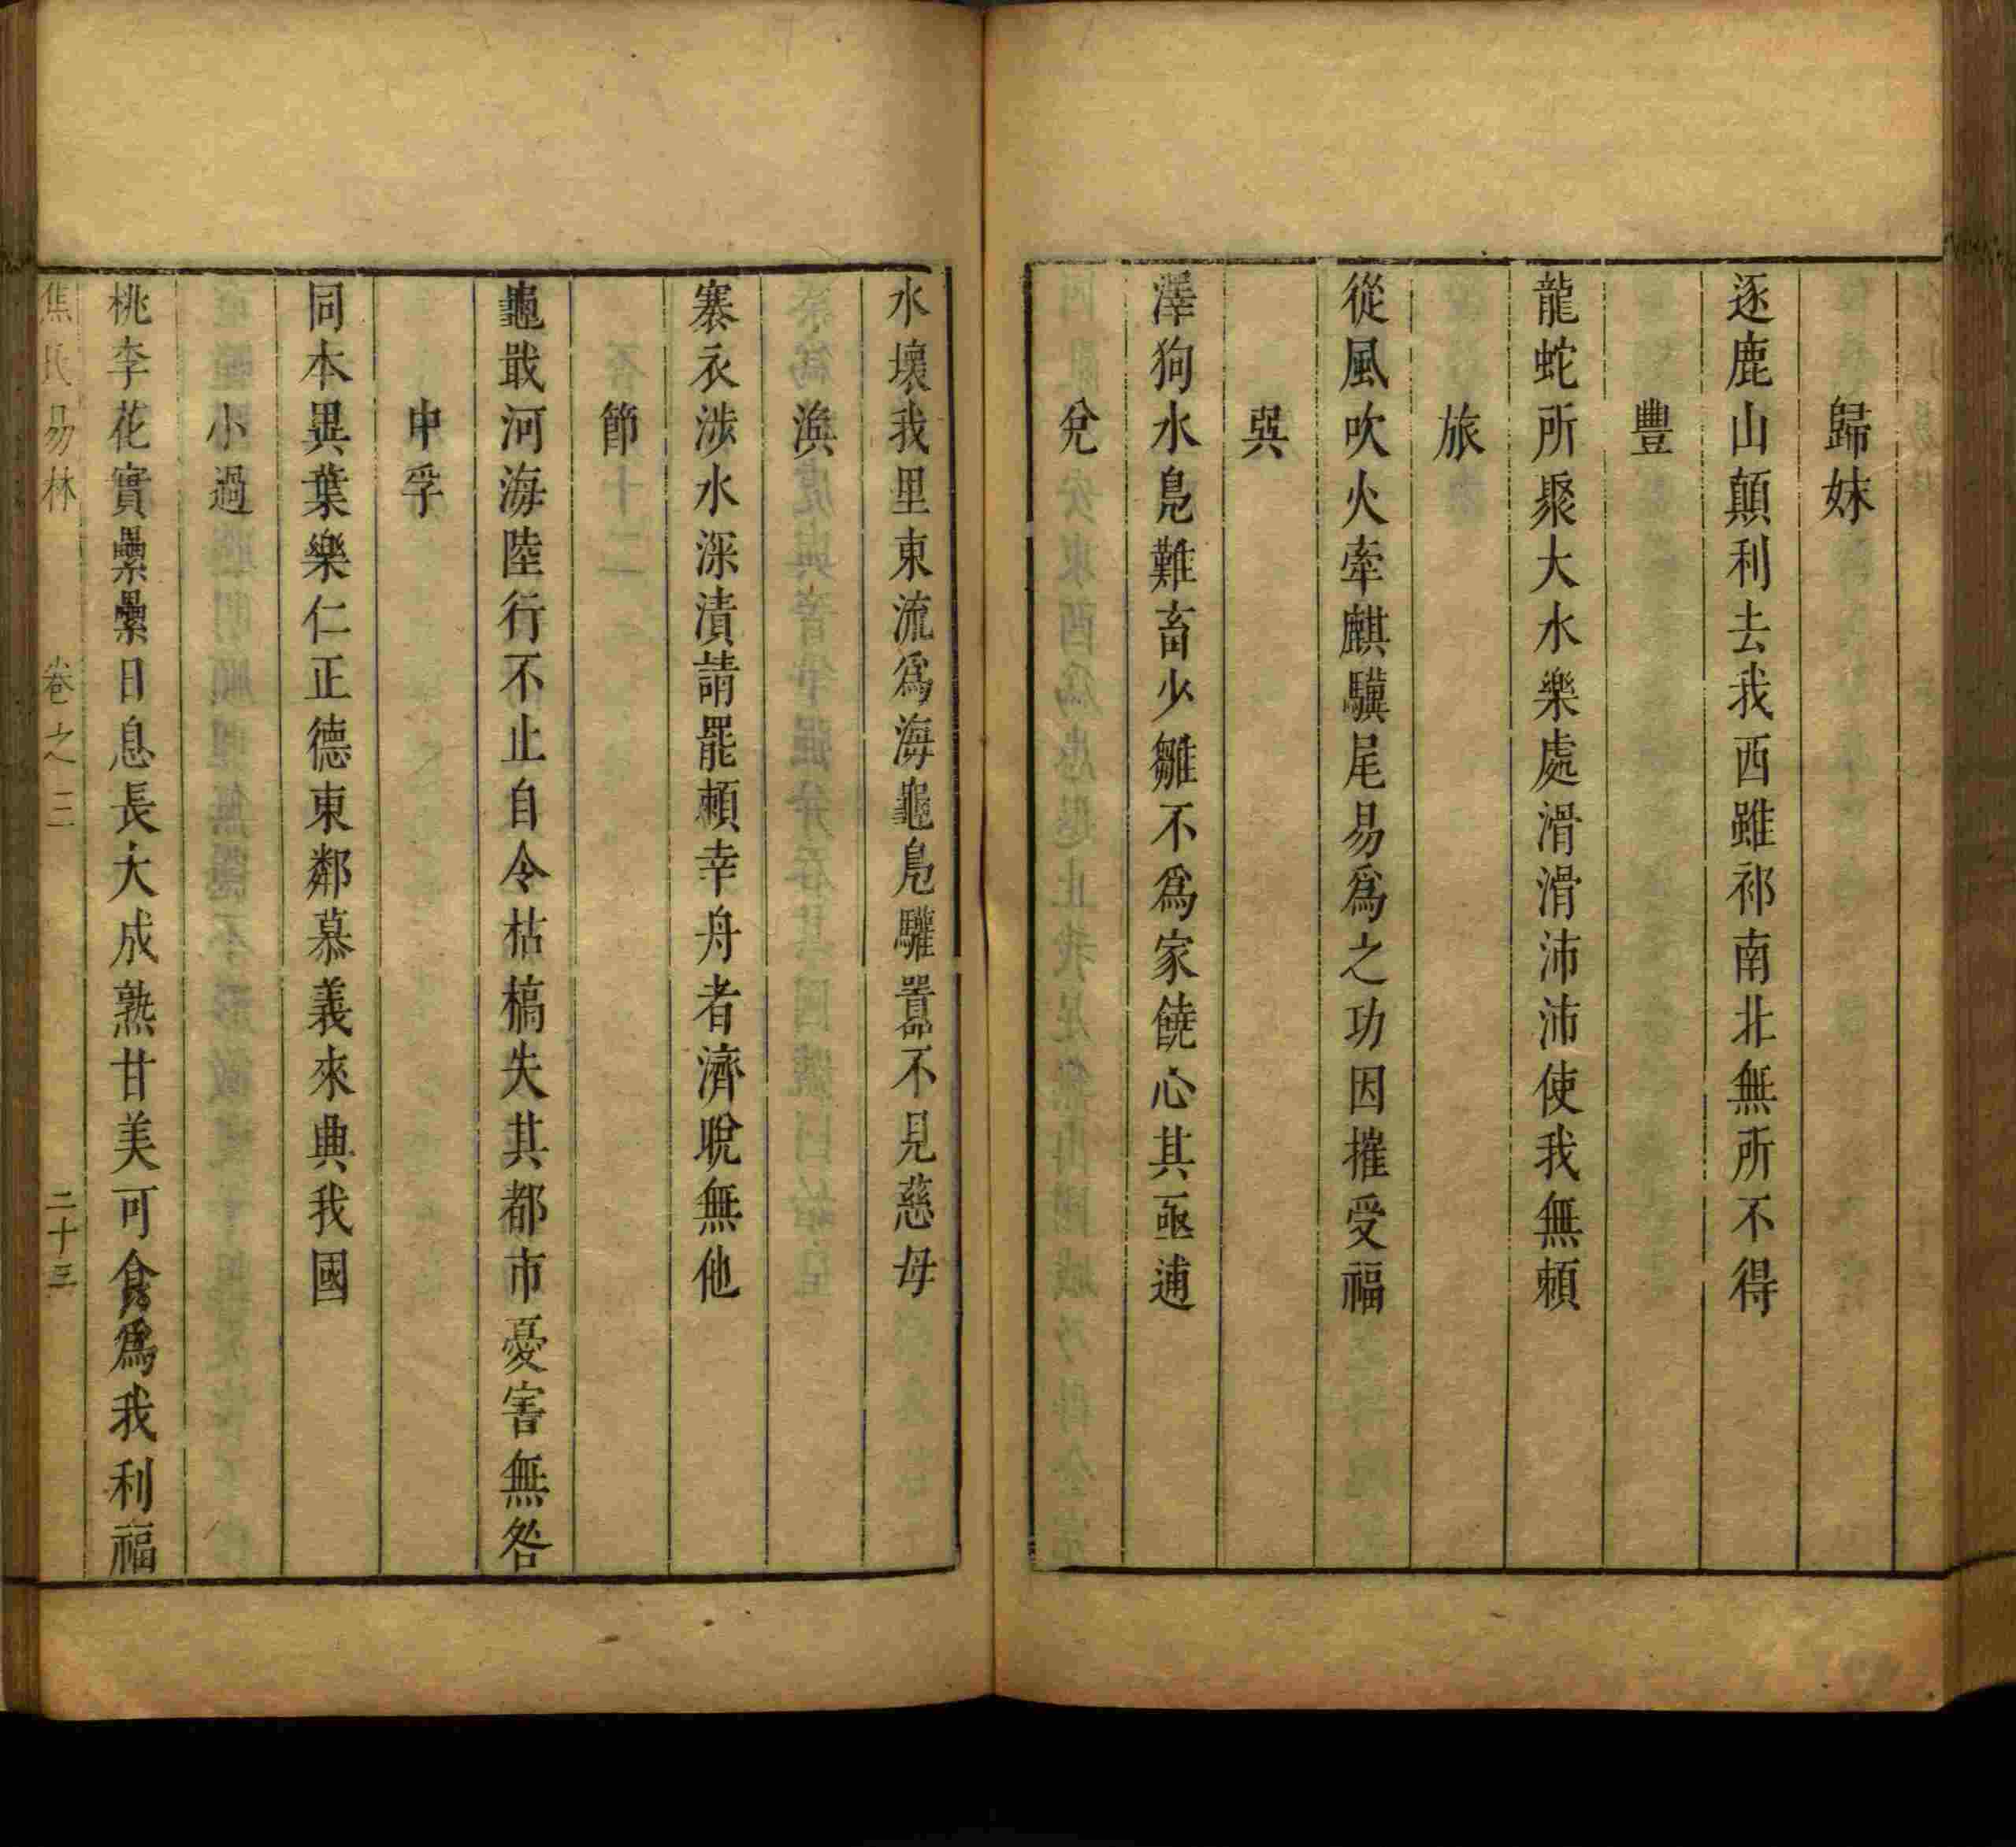 歸妹
逐鹿山顛利去我西雖祁南北無所不得
豐
龍蛇所聚大水樂處滑滑沛沛使我無賴
旅
從風吹火牽麒驥尾易爲之功因摧受福
巽
澤狗水鳧難畜少雛不爲家饒心其亟逋
兌
水壞我里東流爲海龜鳧驩嚣不見慈母
渙
褰衣涉水深漬請罷賴幸舟者濟脫無他
節
龜猒河海陸行不止自令枯槁失其都市憂害無咎
中孚
同本異葉樂仁正德東鄰慕義來典我國
小過
桃李花實纍纍日息長大成熟甘美可食爲我利福
焦氏易林 卷之三 二十三